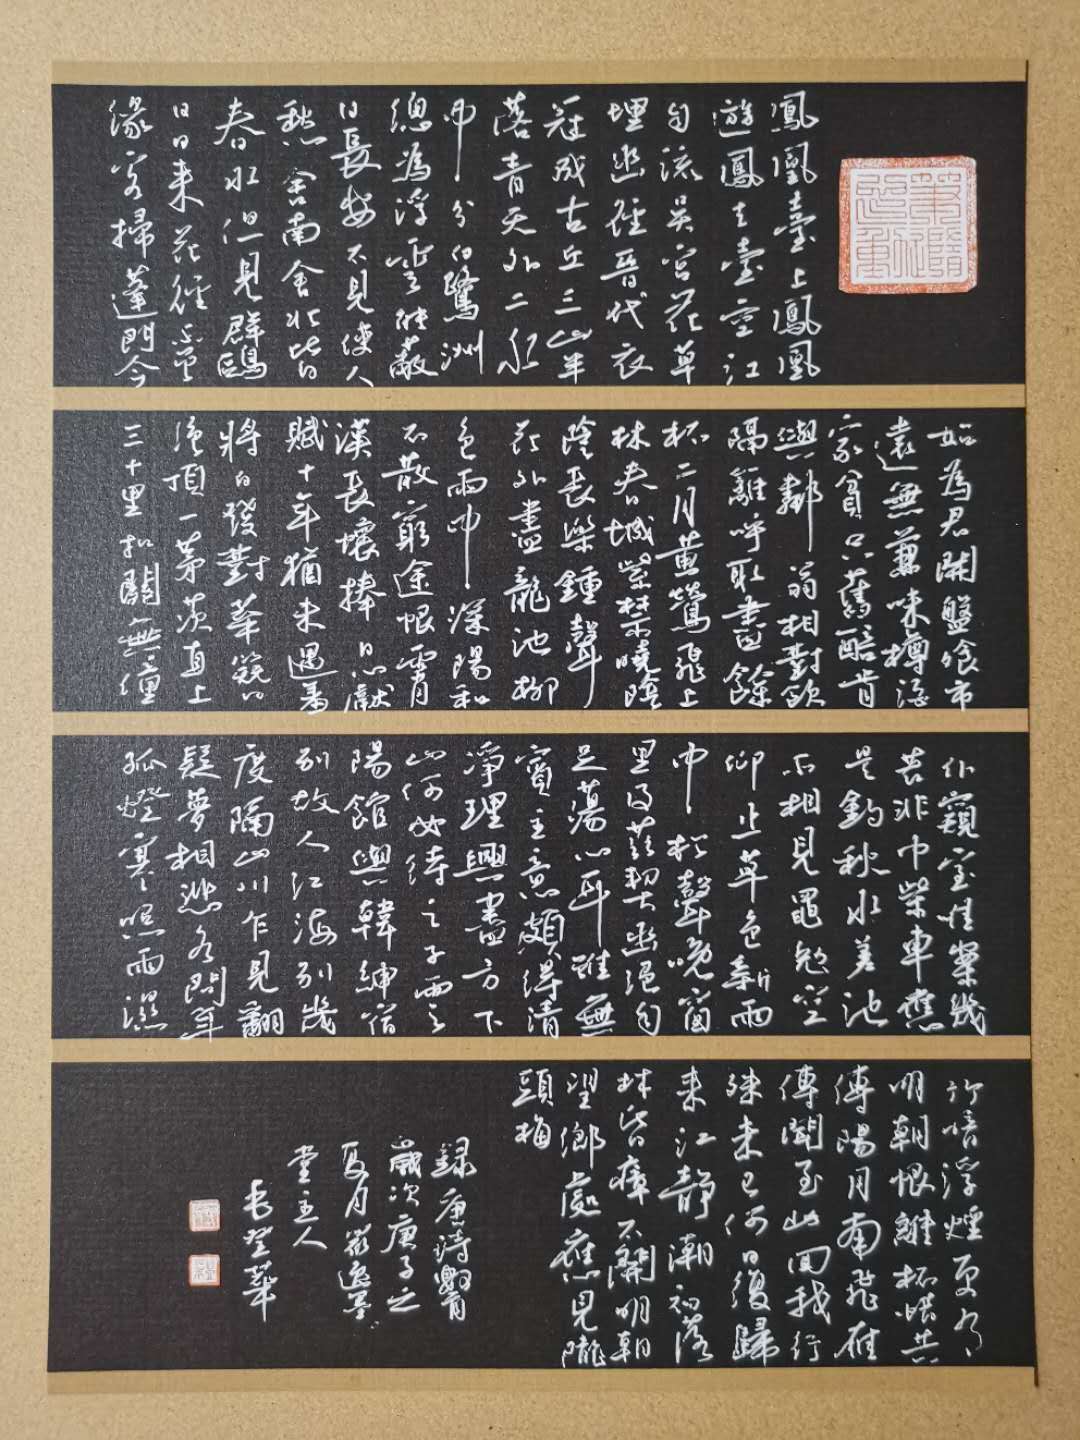 鳳凰臺上鳳凰
遊鳳去臺空江
自流吳宮花草
埋幽徑晉代衣
冠成古丘三山半
落青天外二水
中分白鷺洲
總為浮雲能蔽
日長安不見使人
愁舍南舍北皆
春水但見群鷗
日日来花徑不曾
緣客掃蓬門今
始為君開盤飧市
遠無兼味樽酒
家貧只舊醅肯
與鄰翁相對飲
隔籬呼取盡餘
杯二月黃鶯飛上
林春城紫禁曉陰
陰長樂鐘聲
花外盡龍池柳
色雨中深陽和
不散窮途恨霄
漢長壞捧日心獻
賦十年猶未遇羞
將白發對華簪
絕頂一茅茨直上
三十里扣關無僮
仆窺室惟案几
若非巾柴車應
是釣秋水差池
不相見黽勉空
仰止草色新雨
中松聲晚窗
里及茲契幽絕自
足蕩心耳雖無
賓主意頗得清
淨理興盡方下
山何必待之子雲
陽館與韓紳宿
別故人江海別幾
度隔山川乍見翻
疑夢相悲各問年
孤燈寒照雨濕
竹暗浮煙更有
明朝恨離杯惜共
傳陽月南飛雁
傳聞至此回我行
殊未已何日復歸
来江靜潮初落
林昏瘴不開明朝
望鄉處應見隴
頭梅
錄唐詩數首
歲次庚子之
夏月
堂主人
毛登華